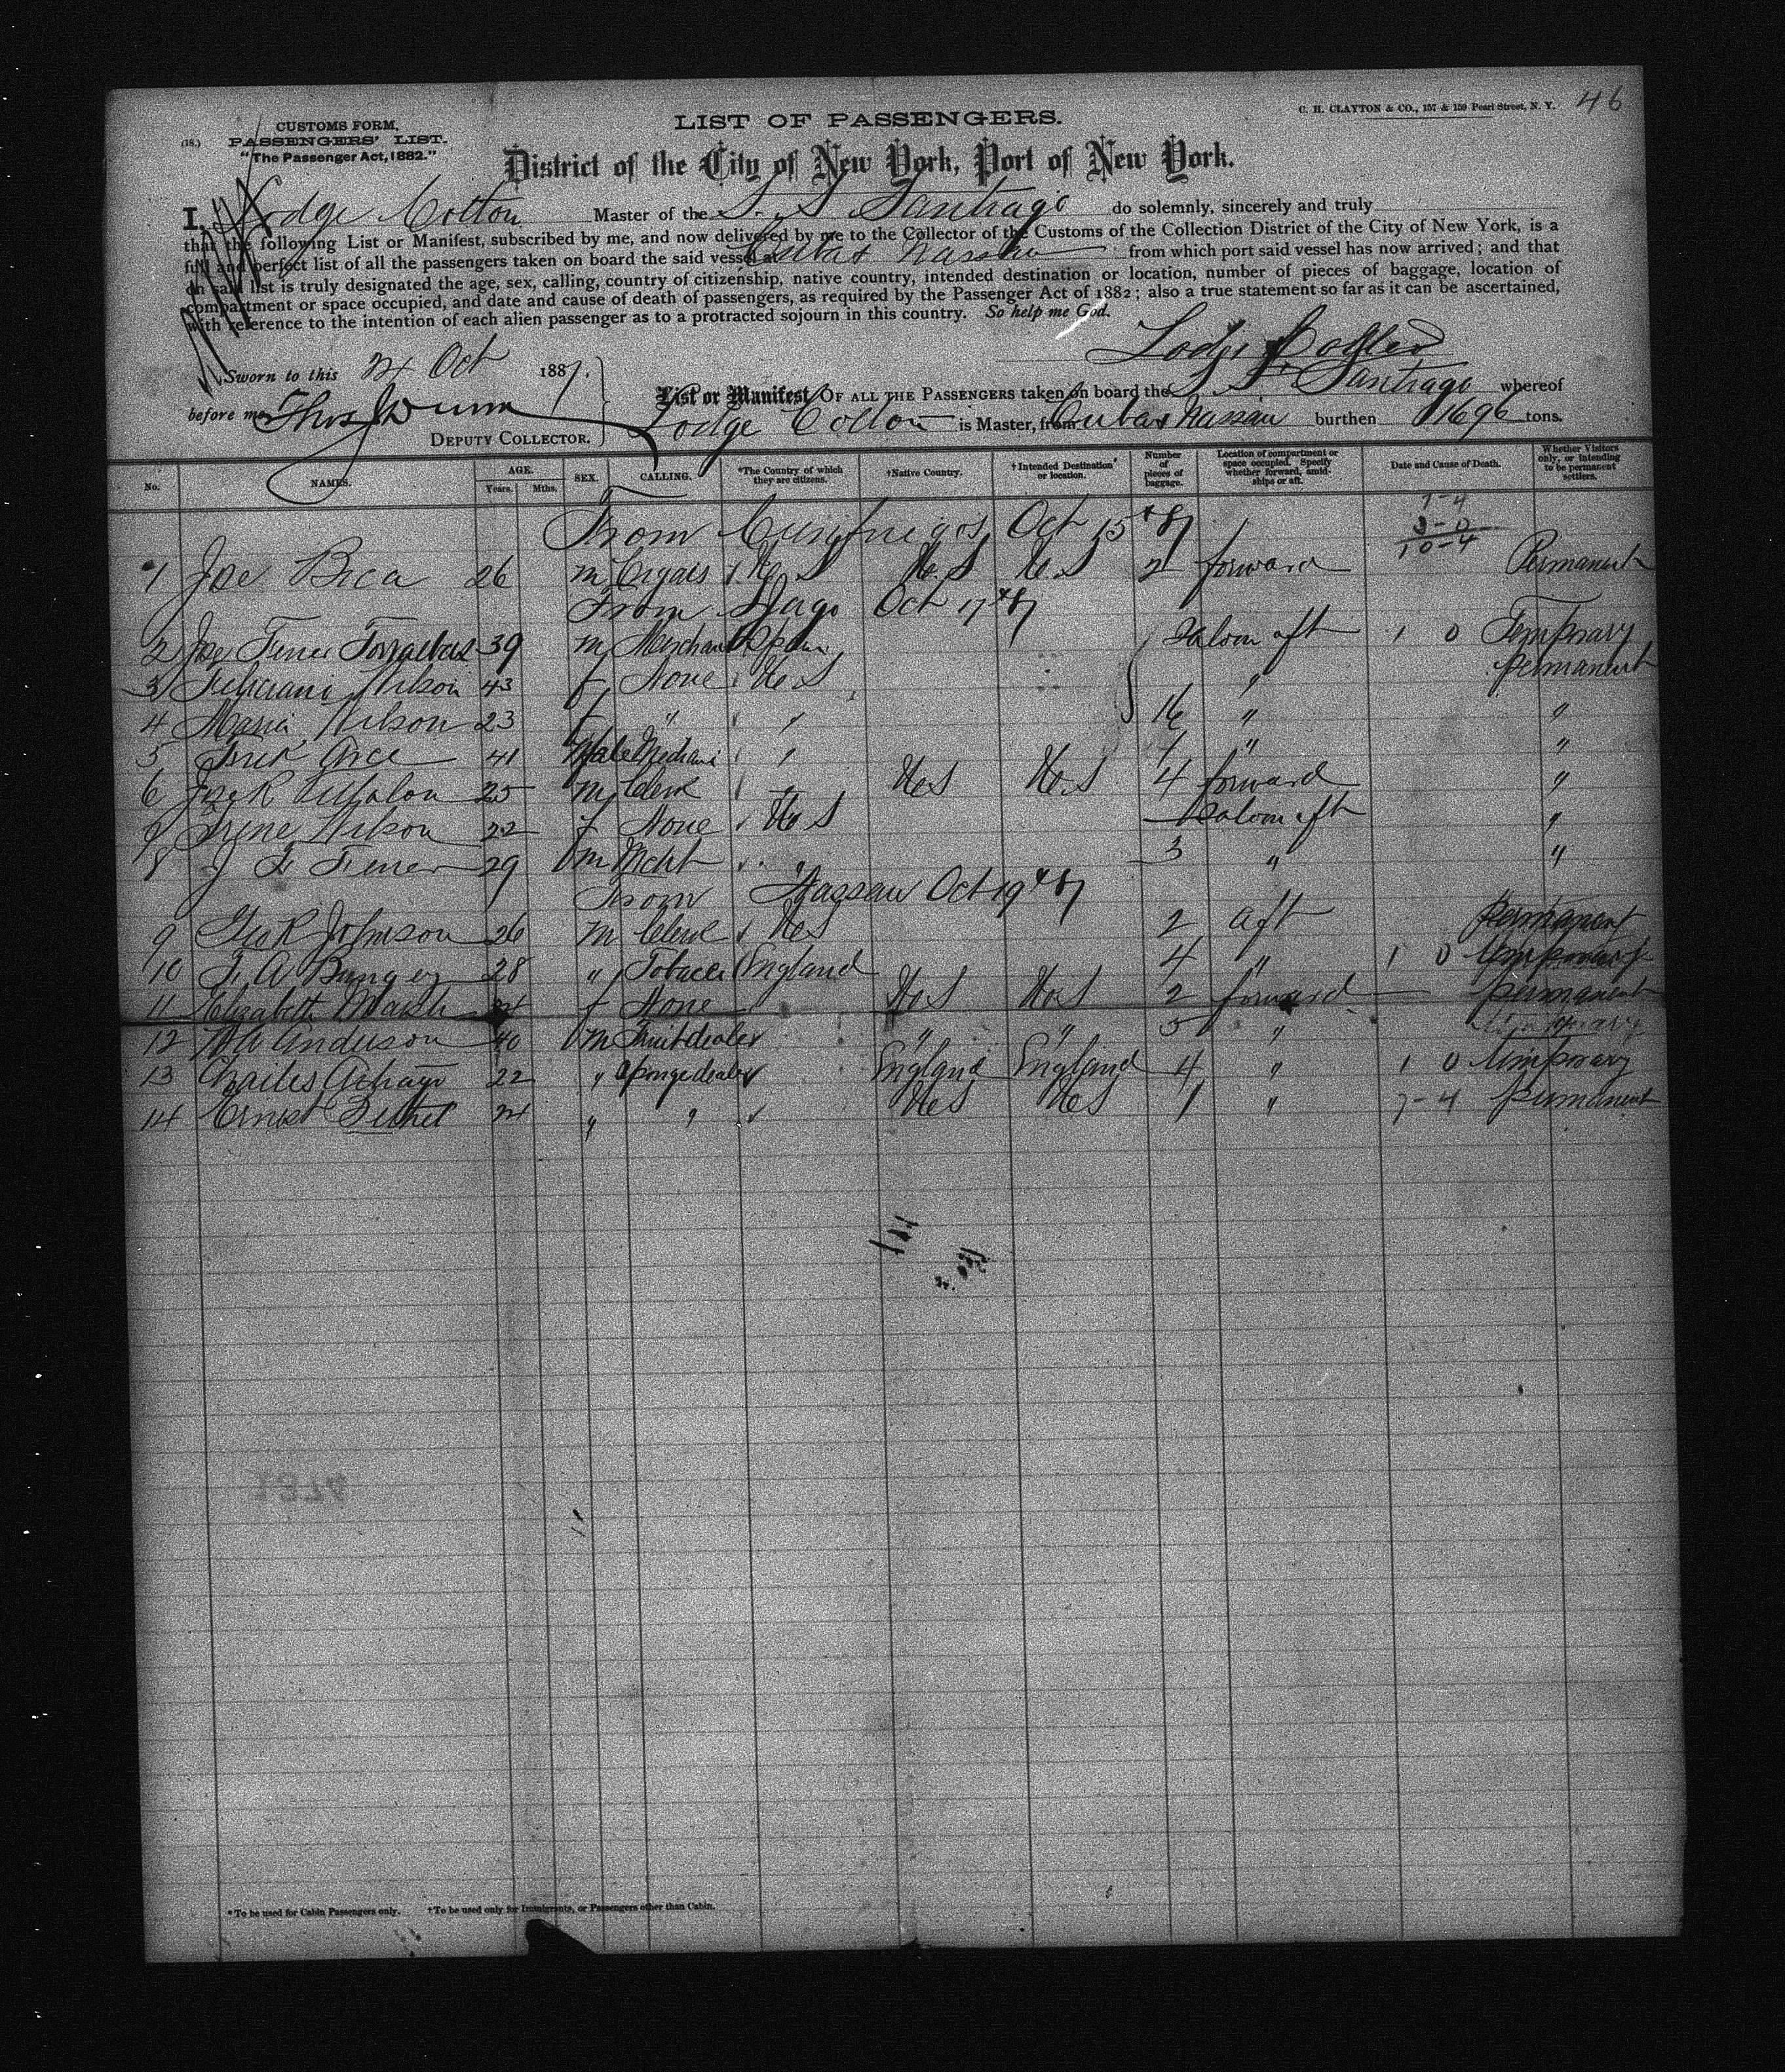 46
C. H. CLAYTON & CO., 157 & 159 Pearl Street, N. Y.
LIST OF PASSENGERS.
(18.)
CUSTOMS FORM,
PASSENGERS' LIST.
"The Passenger Act, 1882."
District of the City of New York, Port of New York.
I, Lodge Colton Master of the S. S Santiago do solemnly, sincerely and truly
that the following List or Manifest, subscribed by me, and now delivered by me to the Collector of the Customs of the Collection District of the City of New York, is a
full and perfect list of all the passengers taken on board the said vessel at Cuba & Nassau from which port said vessel has now arrived; and that
on said list is truly designated the age, sex, calling, country of citizenship, native country, intended destination or location, number of pieces of baggage, location of
compartment or space occupied, and date and cause of death of passengers, as required by the Passenger Act of 1882; also a true statement so far as it can be ascertained,
with reference to the intention of each alien passenger as to a protracted sojourn in this country. So help me God.
Lodge Colton
Sworn to this 24 Oct 1887.
before me
DEPUTY COLLECTOR.
List or Manifest OF ALL THE PASSENGERS taken on board the S. S. Santiago whereof
Lodge Colton is Master, from Cuba & Nassau burthen 1696 tons.
No. NAMES. AGE. Years. Mths. SEX. CALLING. *The Country of which they are citizens. †Native Country. †Intended Destination or location. Number of pieces of baggage. Location of compartment or space occupied. Specify whether forward, amidships or aft. Date and Cause of Death. Whether Visitors only, or intending to be permanent settlers.
7-4
3-0
10-4
From Cienfuegos Oct 15 87
1 Joe 26 m Cigars U S U. S U. S 2 forward Permanent
From Stago Oct 17 87
2 39 m Merchant Spain Saloon aft 1 0 Temporary
3 Wilson 43 f None U S " permanent
4 Maria Wilson 23 f " " 16 " "
5 41 Male " 1 " "
6 25 m Clerk " U S U. S 4 forward "
7 Irene Wilson 22 f None U S Saloon aft "
8 J F Ferrer 29 m Mcht " 3 " "
From Nassau Oct 19 87
9 Geo R Johnson 26 m Clerk U S 2 aft permanent
10 F. A 28 " Tobacco England 4 " 1 0 temporary
11 Elizabeth Marsh f None U S U S 2 forward permanent
12 W A Anderson 40 m Fruit dealer " " 5 "
13 Charles 22 " Sponge dealer England England 4 " 1 0 temporary
14 Ernest 24 " " U S U S 1 " 7-4 permanent
*To be used for Cabin Passengers only. †To be used only for Immigrants, or Passengers other than Cabin.